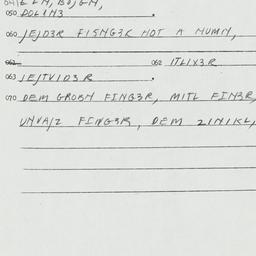 050 DOLINз .
060 JEJDзR FISNGзK HOT A NUMN,
062 062 ITLIXзR
063 JEJTVIDзR .
070 DEM GROBN FINGзR, MITL FINзR,
UNVAJZ FINGзR, DEM ZINIKL,